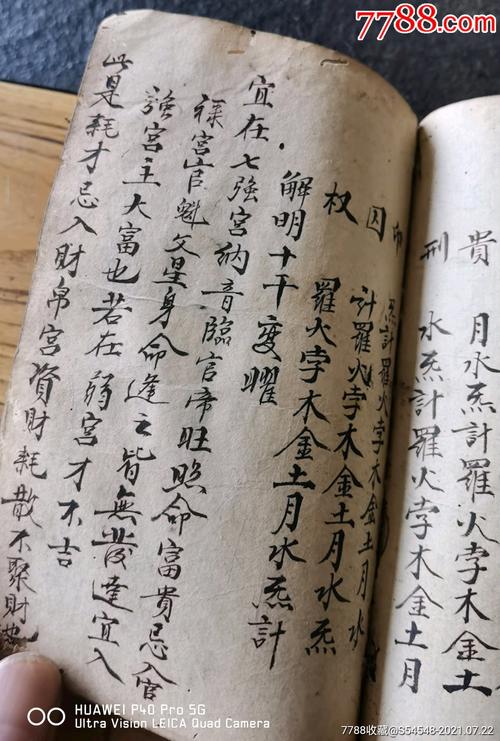 7788.com
貴 月水炁計羅火孛木金土
刑 水炁計羅火孛木金土月
印 炁計羅火孛木金土月水
囚 計羅火孛木金土月水炁
权 羅火孛木金土月水炁計
解明十干变曜
宜在七強宮納音臨官帝旺照命富貴忌入官
禄宮官魁文星身命逢之皆無發達宜入
強宮主大富也若在弱宮才不吉
此是耗才忌入財帛宮資財耗散不聚財也
HUAWEI P40 Pro 5G
Ultra Vision LEICA Quad Camera
7788收藏@S54548-2021.07.22